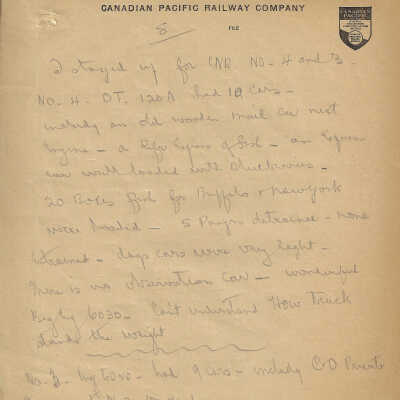 CANADIAN PACIFIC RAILWAY COMPANY
FILE
CANADIAN PACIFIC
5
I stayed up for CNR No-4 and 3-
No-4- OT. 120A had 10 cars-
including an old wooden mail car next
Engine - a Rfgr Express of fish - an Express
car well loaded with
20 Boxes fish for Buffalo & New York
were loaded - 5 Psngrs detrained - none
Entrained - days cars were very light -
There is no observation car - wonderful
Eng by 6030 - Can't understand How Track
stands the weight
No. 3- by 60 - had 9 cars - including